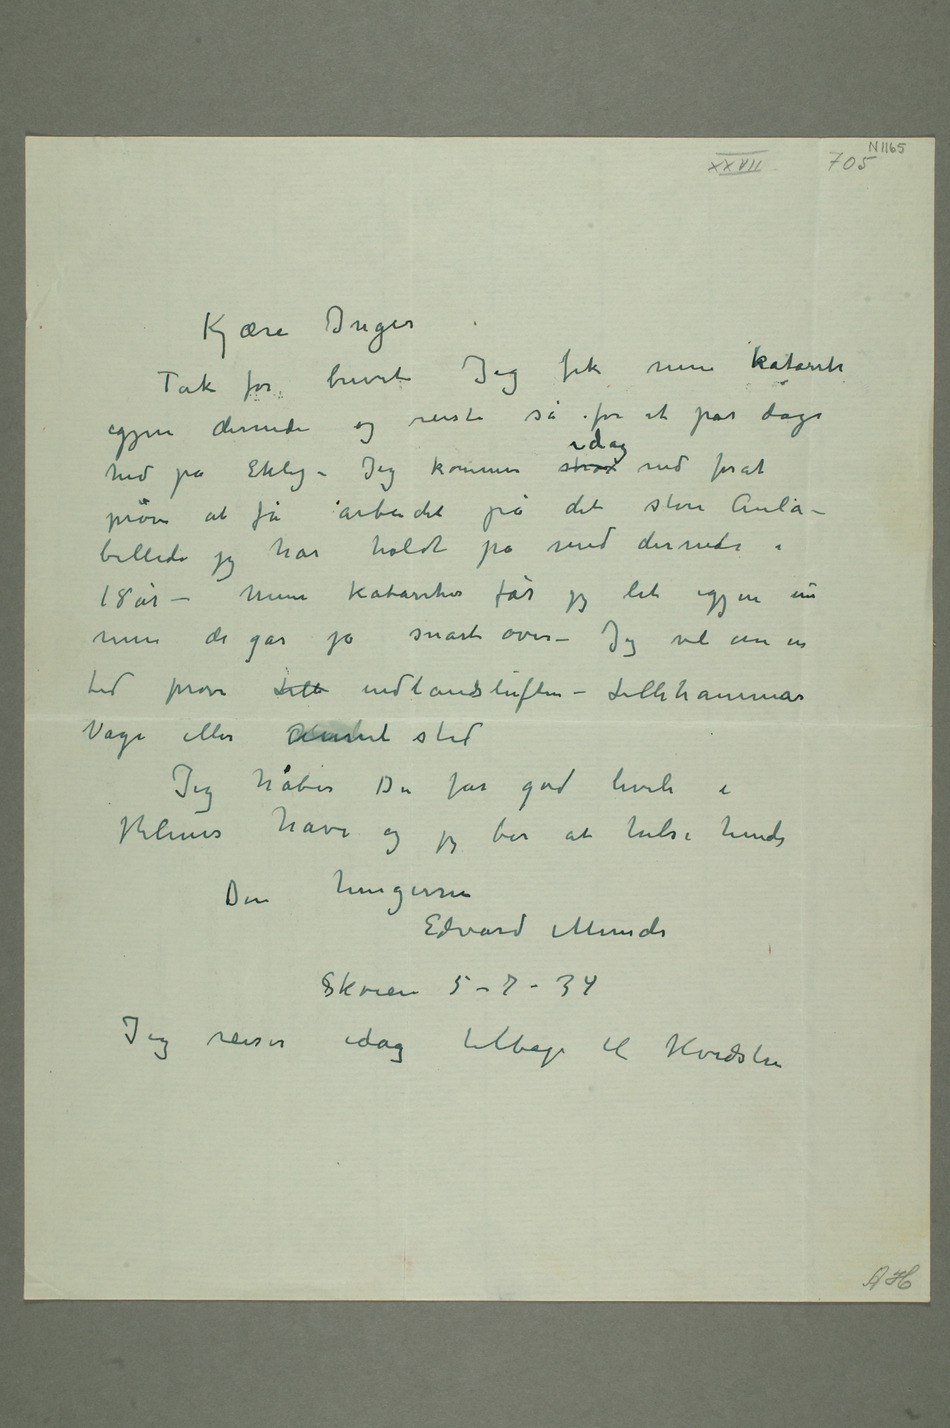 N 1165
XXVII 705
Kjære Inger
Tak for brevet Jeg fik min katarrh
igjen dernede og reiste så for et par dage
hid på Ekely – Jeg kommer idag
strax ned forat
prøve at få arbeidet på det store Aula-
billede jeg har holdt på med dernede i
18 år – Mine katarrher får jeg let igjen nu
men de går jo snart over – Jeg vil om en
tid prøve Lille indlandsluften – Lillehammer
Våge eller annet sted
Jeg håber Du får god hvile i
Helenes have og jeg ber at hilse hende
Din hengivne
Edvard Munch
Skøien 5 – 7 – 34
Jeg reiser idag tilbage til Hvidsten
AH